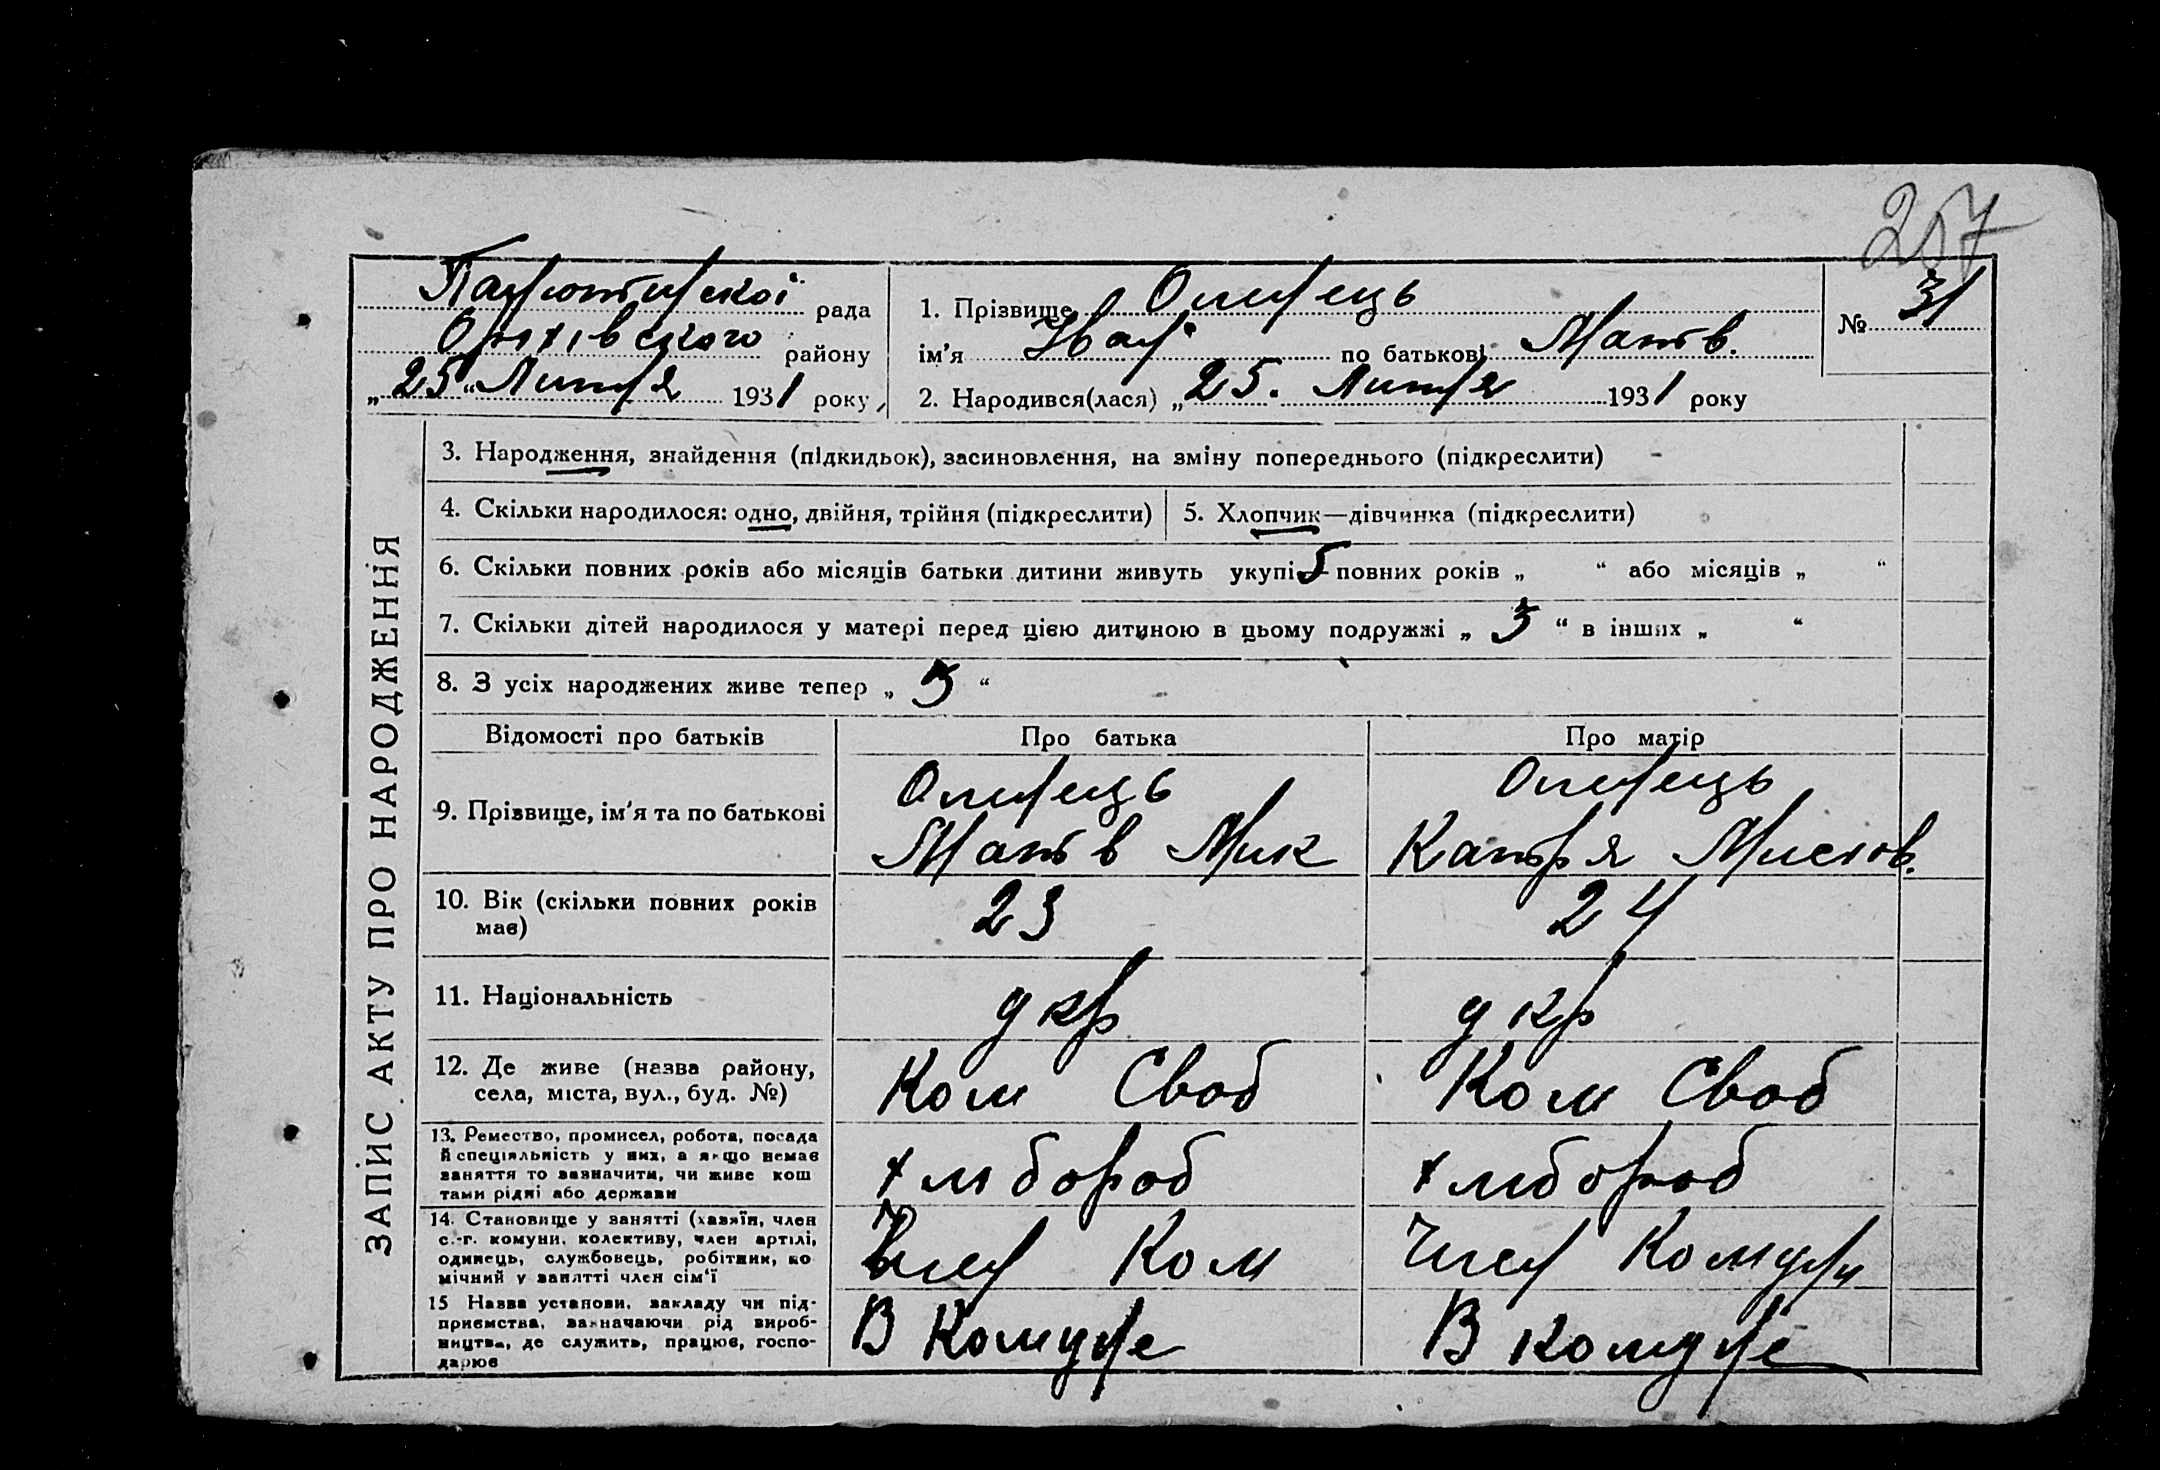 257
Панютинської рада
Оріхівського району
„25“ Лютня 1931 року
1. Прізвище Олинець
ім'я Иван по батькові Матв.
№ 31
2. Народився(лася) „25. Лютня 1931 року
ЗАПИС АКТУ ПРО НАРОДЖЕННЯ
3. Народження, знайдення (підкидьок), засиновлення, на зміну попереднього (підкреслити)
4. Скільки народилося: одно, двійня, трійня (підкреслити)
5. Хлопчик—дівчинка (підкреслити)
6. Скільки повних років або місяців батьки дитини живуть укупі 5 повних років „ “ або місяців „ “
7. Скільки дітей народилося у матері перед цією дитиною в цьому подружжі „ 3 “ в інших „ “
8. З усіх народжених живе тепер „ 3 “
Відомості про батьків Про батька Про матір
9. Прізвище, ім'я та по батькові
Олинець
Матв Мик
Олинець
Катря
10. Вік (скільки повних років
має)
23
24
11. Національність
укр
укр
12. Де живе (назва району,
села, міста, вул., буд. №)
Ком Своб
Ком Своб
13. Ремество, промисел, робота, посада
й спеціяльність у них, а якщо немає
заняття то зазначити, чи живе кош
тами рідні або держави
хлібороб
хлібороб
14. Становище у занятті (хазяїн, член
с.-г. комуни, колективу, член артілі,
одинець, службовець, робітник, по
мічний у занятті член сім'ї
Член Ком
Член Комуни
15 Назва установи, закладу чи під-
приємства, зазначаючи рід вироб-
ництва, де служить, працює, госпо-
дарює
В Комуне
В комуне